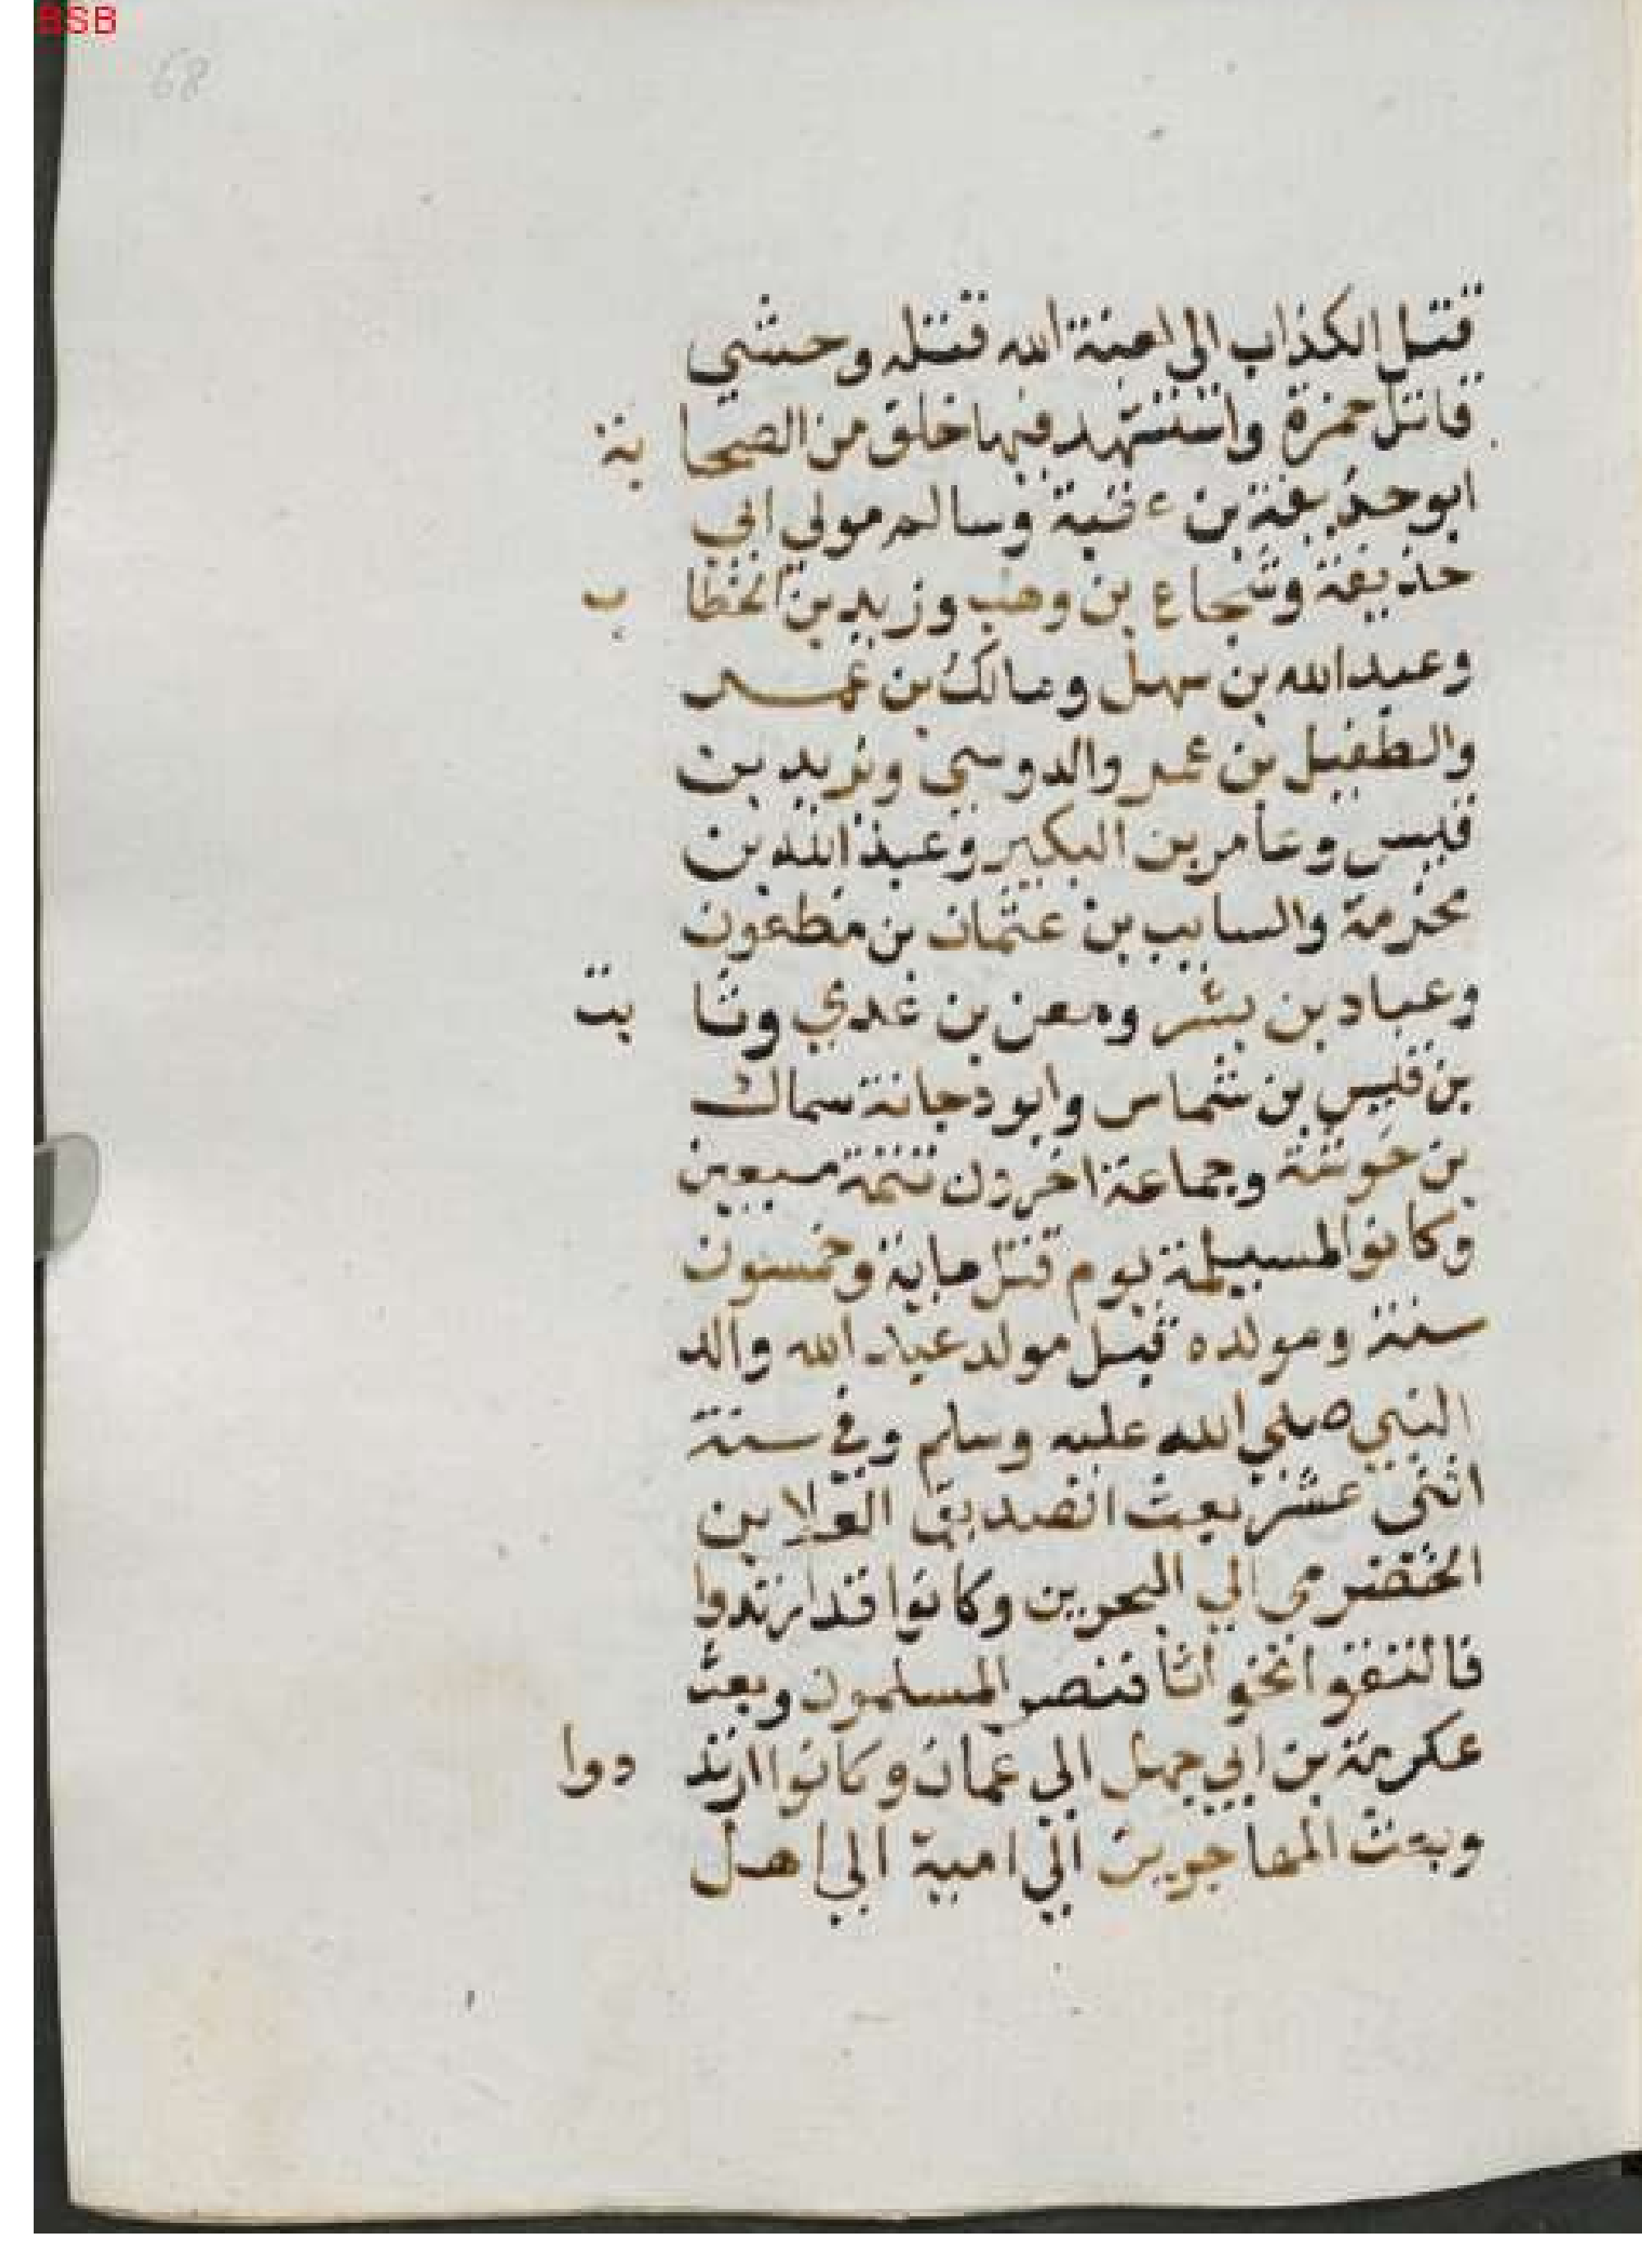 BSB
68
قتل الكذاب الي لعنة الله قتله وحشي
قاتل حمزة واستشهد فيها خلق من الصحابة
ابو حذيفة بن عتبة وسالم مولي ابي
حذيفة وشجاع بن وهب وزيد بن الخطاب
وعبد الله بن سهل ومالك بن عمر
والطفيل بن عمر والدوسي ويزيد بن
قيس وعامر بن البكير وعبد الله بن
مخرمة والسايب بن عثمان بن مظعون
وعباد بن بشر ومعن بن عدي وثابت
بن قيس بن شماس وابو دجانة سماك
بن خوشة وجماعة اخرون تتمة سبعين
وكانوا لمسيلمة يوم قتل ماية وخمسون
سنة ومولده قبل مولد عبد الله والد
النبي صلي الله عليه وسلم وفي سنة
اثني عشر بعث الصديق العلا بن
الخضرمي الي البحرين وكانوا قد ارتدوا
فالتقوا فنصر المسلمون وبعث
عكرمة بن ابي جهل الي عمان وكانوا ارتددوا
وبعث المهاجرين ابي امية الي اهل